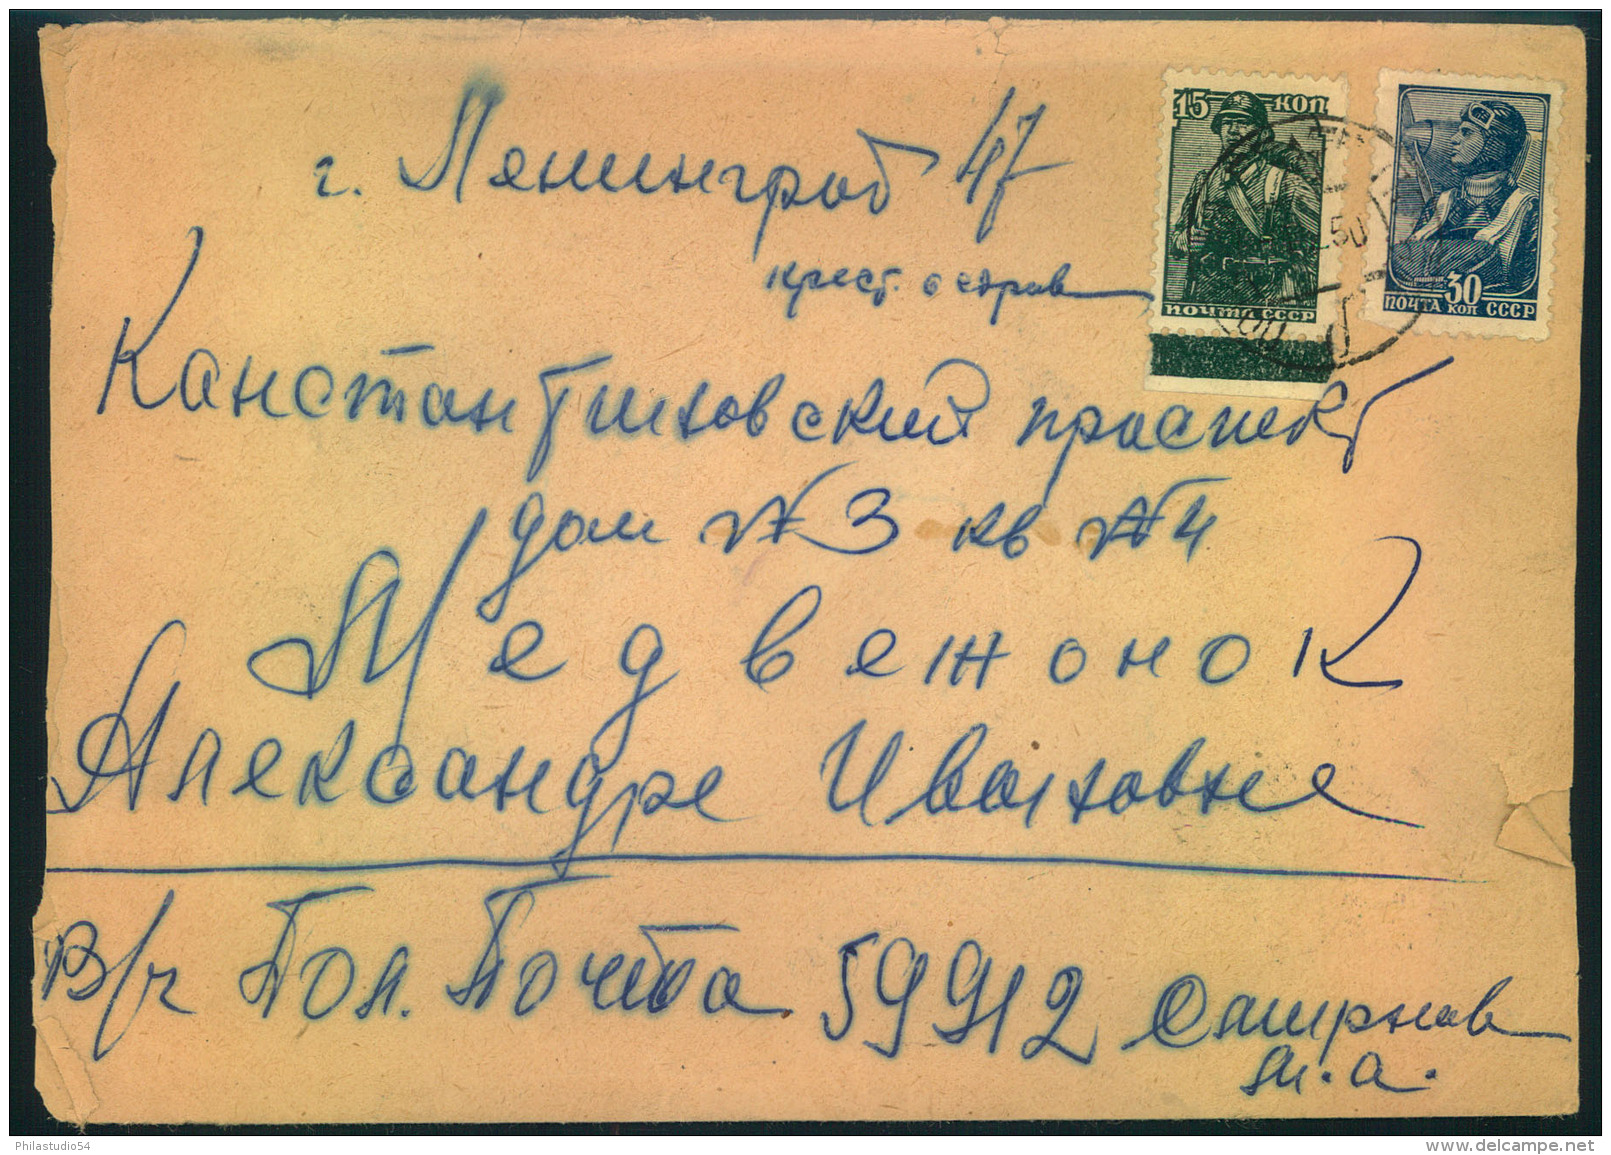 15 КОП
ПОЧТА СССР
30
ПОЧТА КОП СССР
50
г. Ленинград 47
крест. остров
Канстантиновский праспект
дом № 3 кв № 4
Медвежонок
Александре Ивановне
В/ч Пол. Почта 59912 Смирнов
м.а.
Philastudio54
www.delcampe.net